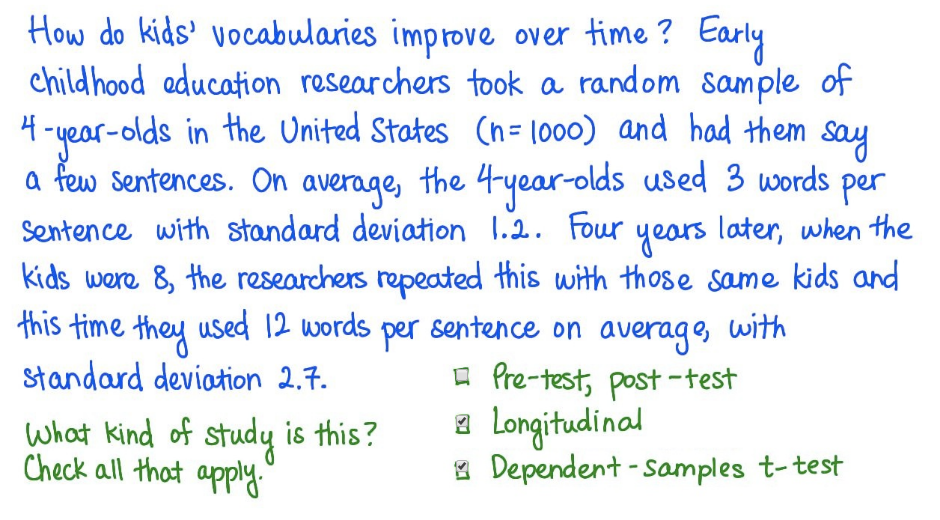 How do kids' vocabularies improve over time? Early
childhood education researchers took a random sample of
4-year-olds in the United States (n=1000) and had them say
a few sentences. On average, the 4-year-olds used 3 words per
sentence with standard deviation 1.2. Four years later, when the
kids were 8, the researchers repeated this with those same kids and
this time they used 12 words per sentence on average, with
standard deviation 2.7.
What kind of study is this?
Check all that apply.
Pre-test, post-test
Longitudinal
Dependent-samples t-test